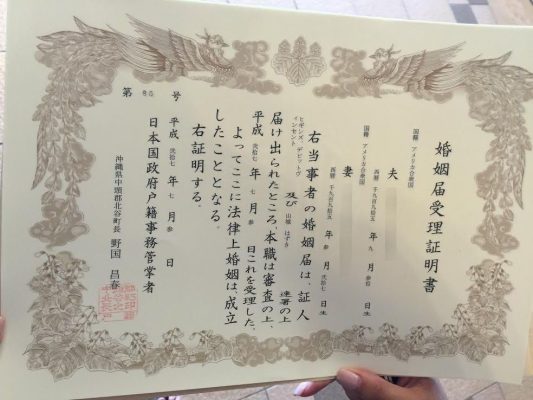 婚姻届受理証明書
国籍 アメリカ合衆国
夫
西暦 千九百九拾五 年 九 月 参拾 日生
国籍 アメリカ合衆国
妻
西暦 千九百九拾五 年 参 月 弐拾七 日生
右当事者の婚姻届は、証人
ヒギンズ、デビットヴィンセント 及び 山城 はずき 連署の上
届け出られたところ、本職は審査の上、
平成 弐拾七 年 七 月 参 日これを受理した、
よってここに法律上婚姻は、成立
したこととなる。
右証明する。
第 号
平成 弐拾七 年 七 月 参 日
日本国政府戸籍事務管掌者
沖縄県中頭郡北谷町長 野国 昌春